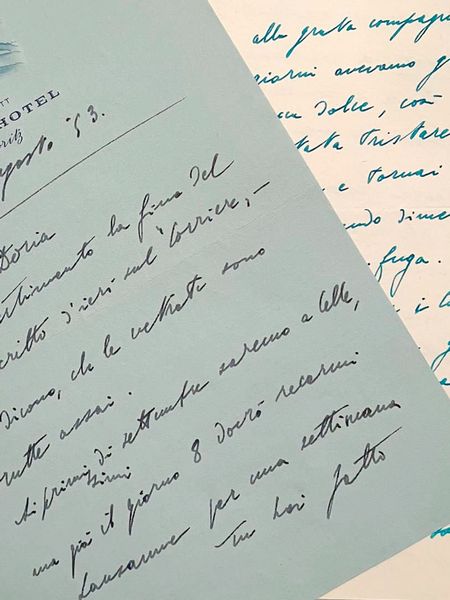 HOTEL
ritz
gosto '53.
Doria
rtimento la fine del
critto d'ieri sul "Corriere,-
dicono, che le vetrate sono
rutte assai.
Ai primi
simi
di settembre saremo a Celle,
ma già il giorno 8 dovrò recarmi
Lausanne per una settimana
Tu hai fatto
alla grata compagn
giorni avevamo g
dolce, così
tata tristare
e tornai
ndo dime
fuga.